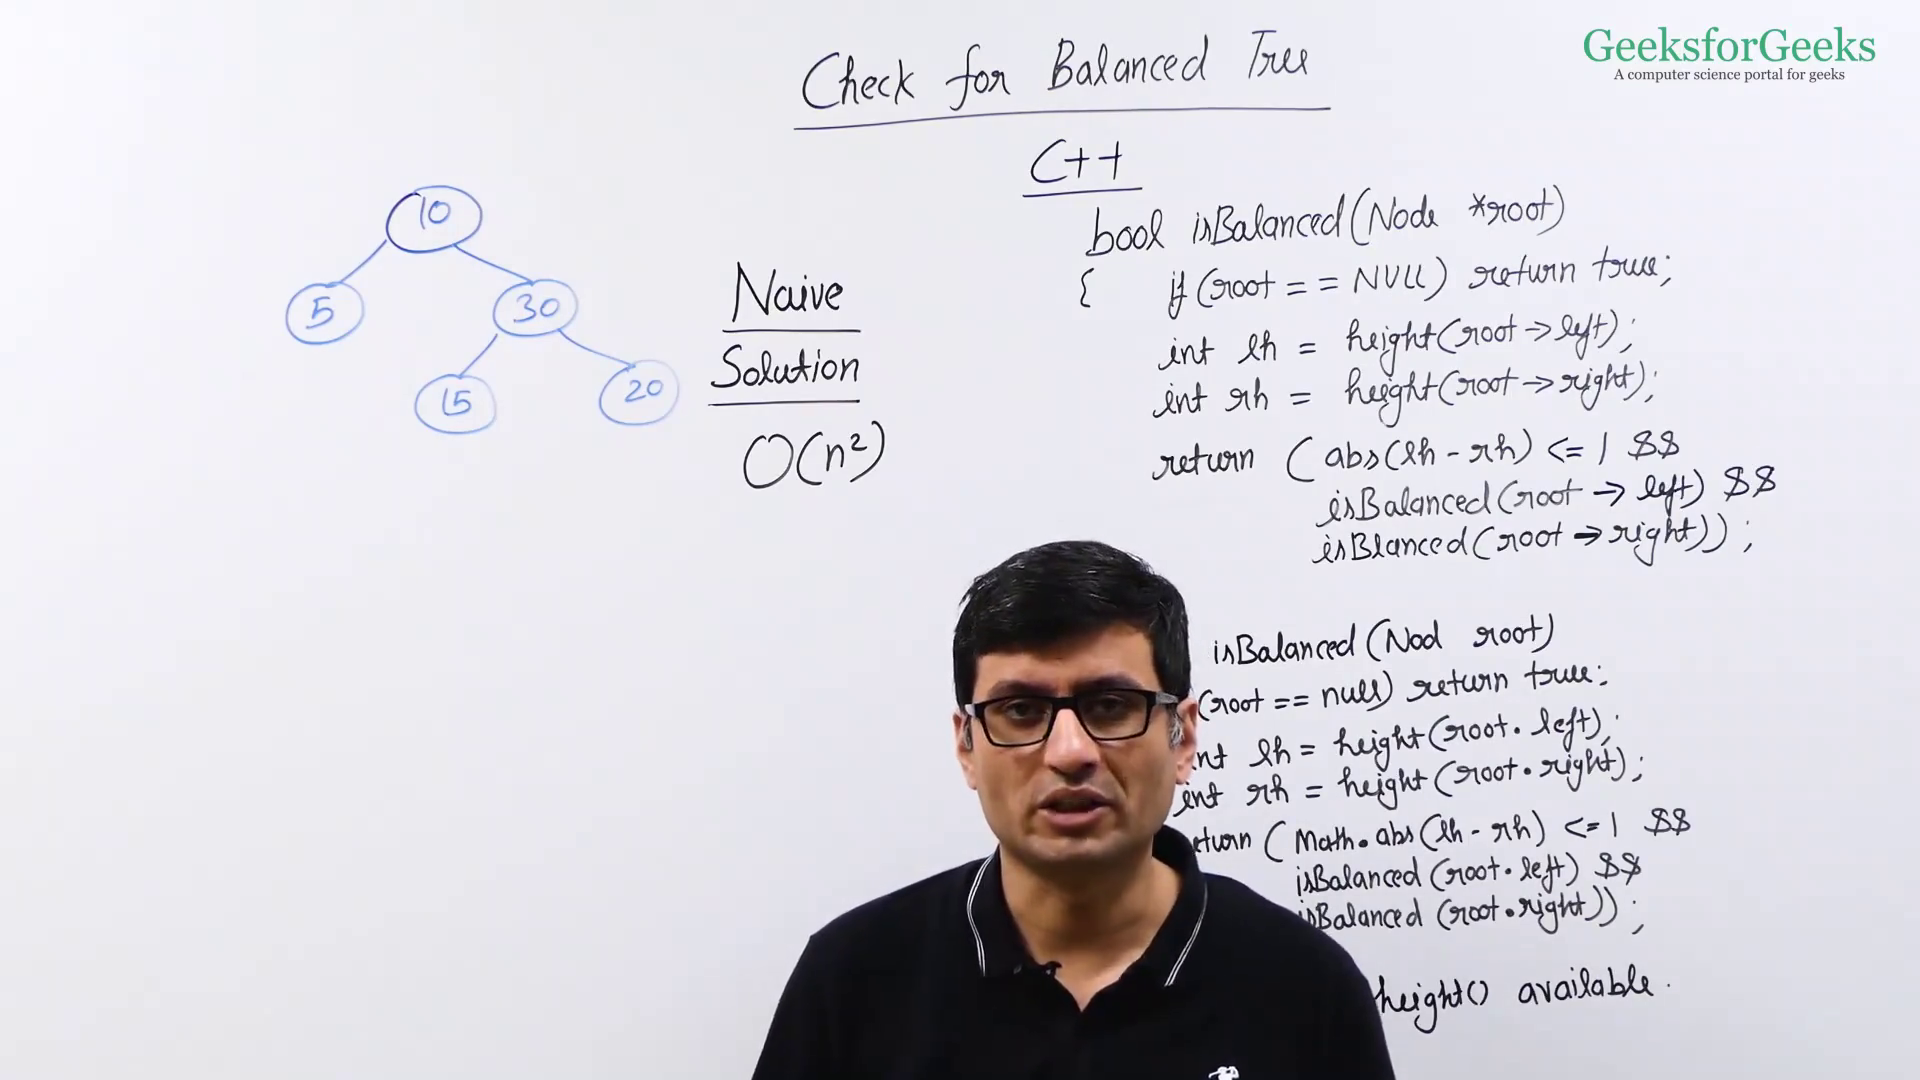 GeeksforGeeks
A computer science portal for geeks
Check for Balanced Tree
C++
10
5
30
15
20
Naive
Solution
O(n²)
bool isBalanced(Node *root)
{ if(root == NULL) return true;
int lh = height(root->left);
int rh = height(root->right);
return (abs(lh - rh) <= 1 &&
isBalanced(root -> left) &&
isBlanced(root -> right));
isBalanced(Nod root)
(root == null) return true;
int lh = height(root. left);
int rh = height(root.right);
(Math.abs(lh - rh) <= 1 &&
isBalanced(root.left) &&
isBalanced(root.right));
height() available.